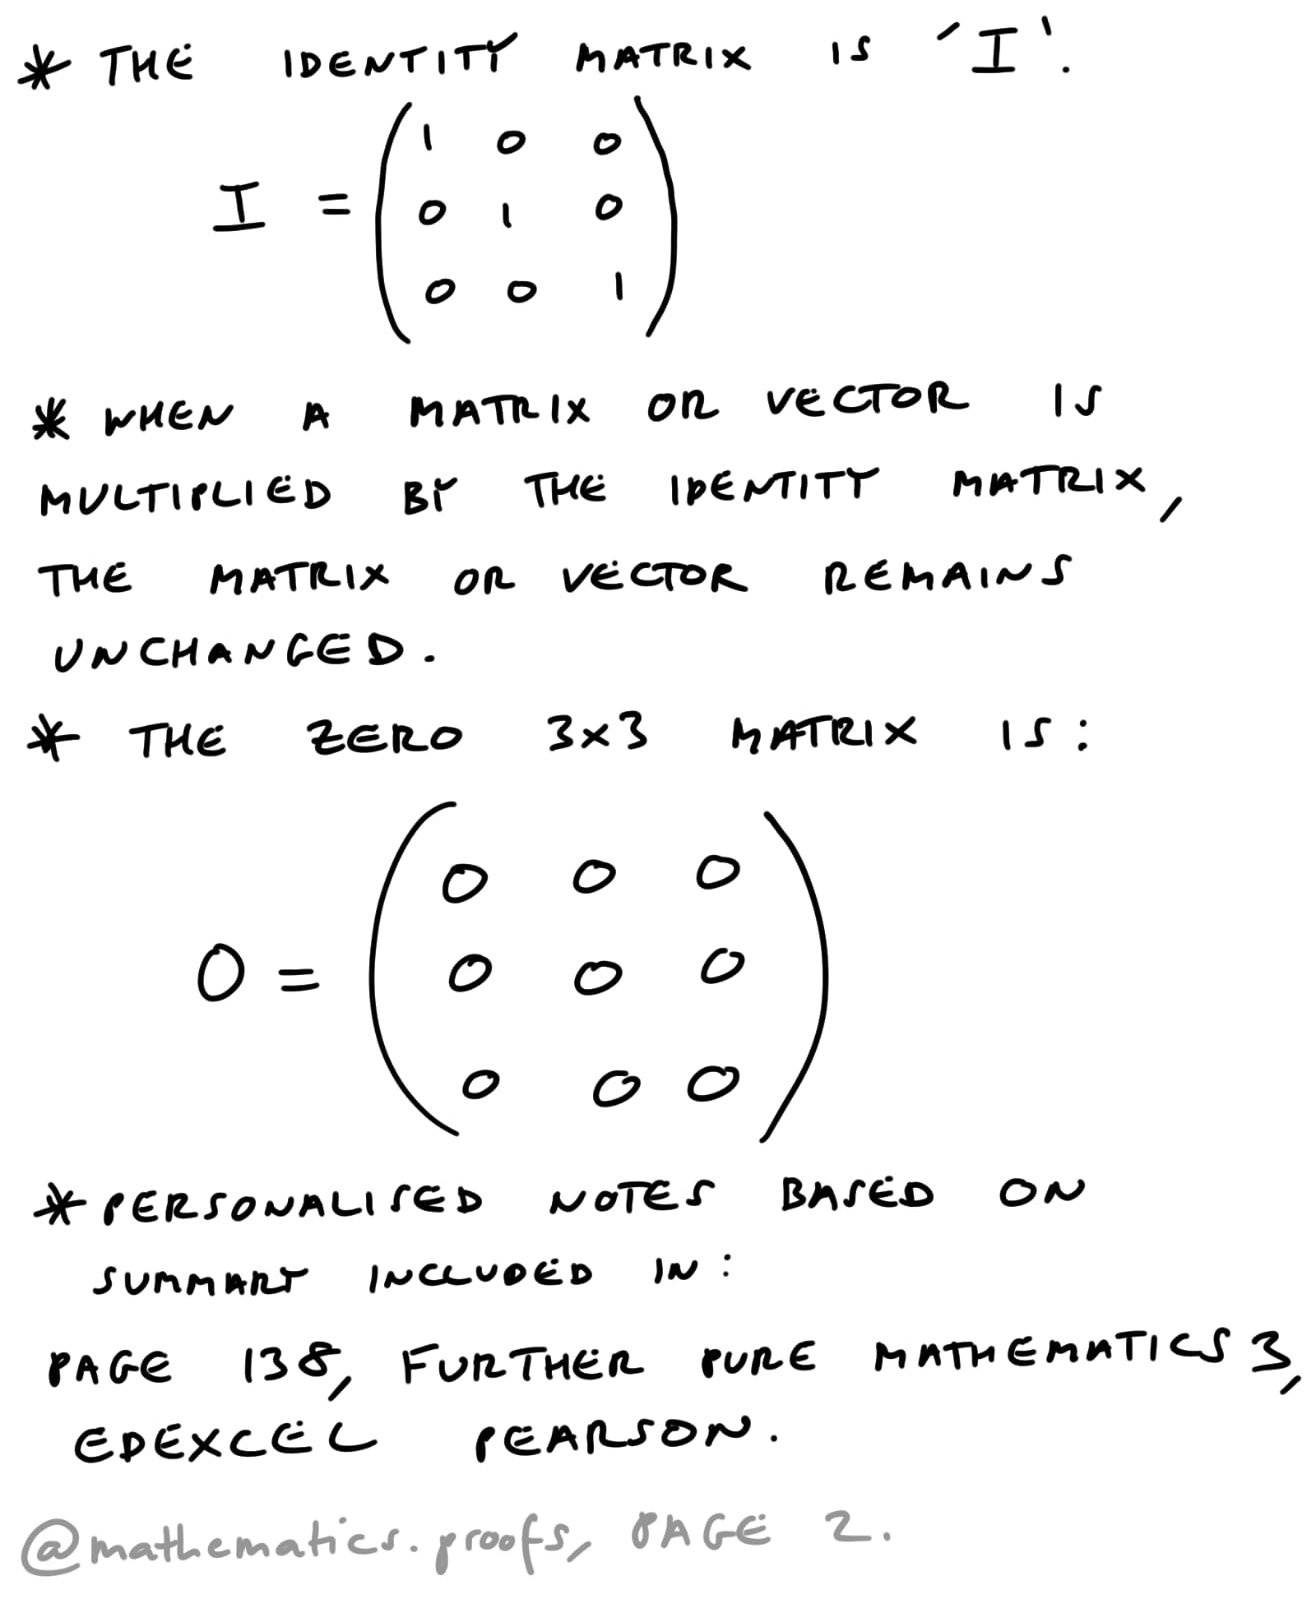 * THE IDENTITY MATRIX IS 'I'.
1 0 0
I = ( 0 1 0 )
0 0 1
* WHEN A MATRIX OR VECTOR IS
MULTIPLIED BY THE IDENTITY MATRIX,
THE MATRIX OR VECTOR REMAINS
UNCHANGED.
* THE ZERO 3x3 MATRIX IS:
0 0 0
0 = ( 0 0 0 )
0 0 0
* PERSONALISED NOTES BASED ON
SUMMARY INCLUDED IN:
PAGE 138, FURTHER PURE MATHEMATICS 3,
EDEXCEL PEARSON.
@mathematics.proofs, PAGE 2.